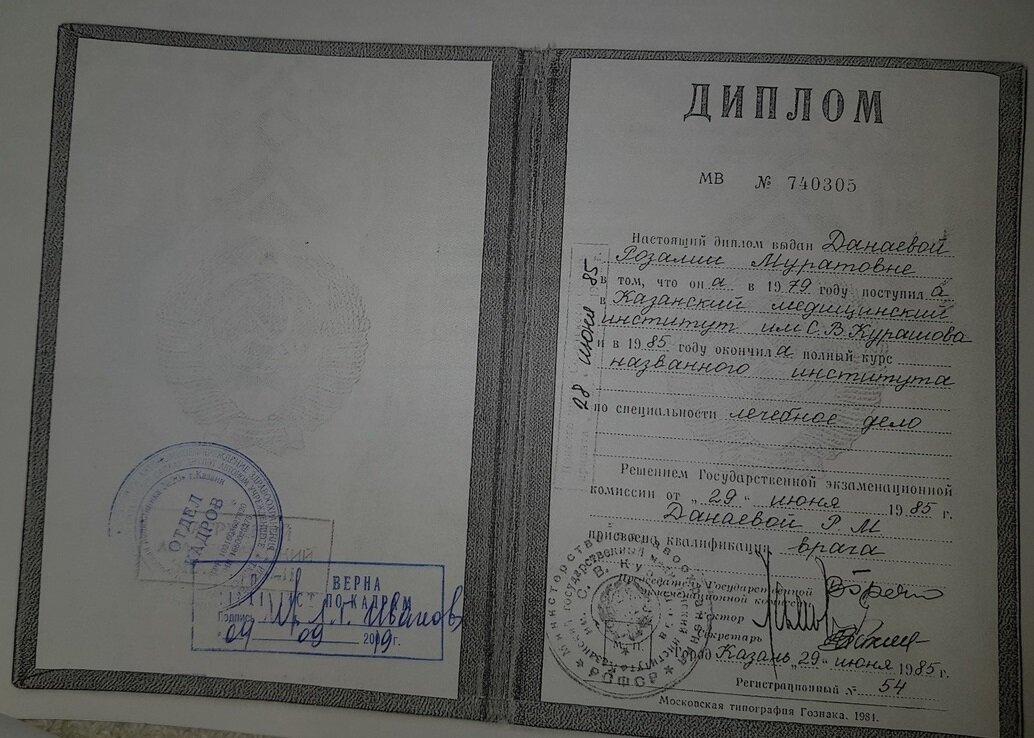 ОТДЕЛ
КАДРОВ
г.Казани
ВЕРНА
ПО КАДРАМ
Подпись Иванов
09 09 2019г.
ДИПЛОМ
МВ № 740305
Настоящий диплом выдан Данаевой
Розалии Муратовне
в том, что он а в 1979 году поступил а
в Казанский медицинский
институт им С. В. Курашова
и в 1985 году окончил а полный курс
названного института
по специальности лечебное дело
28 июня 85
Решением Государственной экзаменационной
комиссии от „29“ июня 1985 г.
Данаевой Р. М
присвоена квалификация врача
Председатель Государственной
экзаменационной комиссии
Ректор
Секретарь
М.П.
Город Казань „29“ июня 1985 г.
РСФСР
Регистрационный № 54
Московская типография Гознака. 1981.